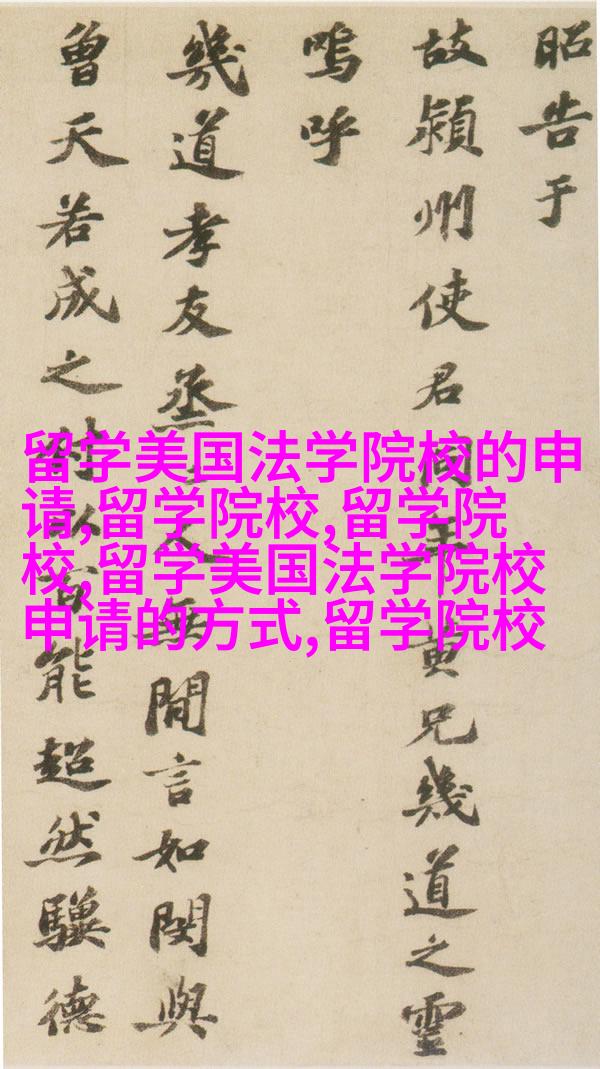 昭告于
故潁州使君同黄兄幾道之靈
嗚呼
幾道孝友烝人無間言如閔與
曾天若成之付以百能超然驥德
留学美国法学院校的申
请,留学院校,留学院
校,留学美国法学院校
申请的方式,留学院校